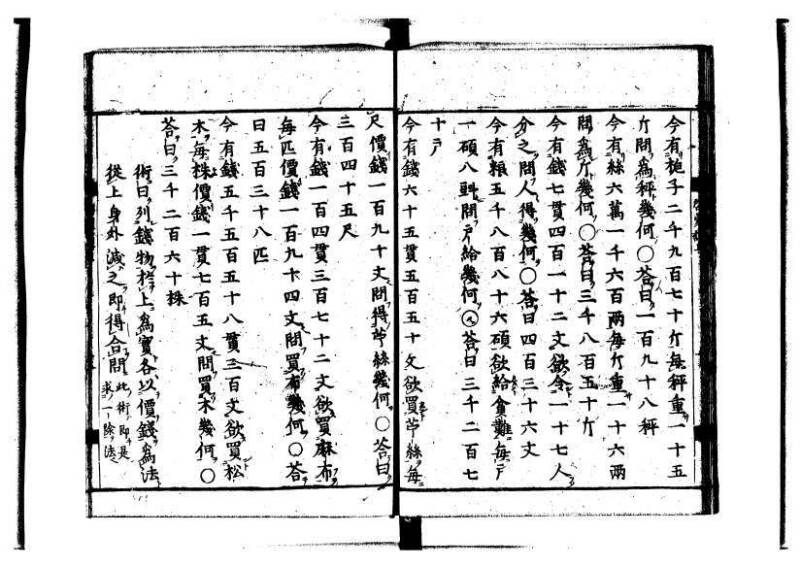 今有梔子二千九百七十斤每秤重一十五
斤問為秤幾何○荅曰一百九十八秤
今有絲六萬一千六百兩每斤重一十六兩
問為斤幾何○荅曰三千八百五十斤
今有錢七貫四百一十二文欲令一十七人
分之問人得幾何○荅曰四百三十六文
今有粮五千八百八十六碩欲給貧難每戶
一碩八㪷問戶給幾何○荅曰三千二百七
十戶
今有錢六十五貫五百五十文欲買苧絲每
尺價錢一百九十文問得苧絲幾何○荅曰
三百四十五尺
今有錢一百四貫三百七十二文欲買麻布
每匹價錢一百九十四文問買布幾何○荅
曰五百三十八匹
今有錢五千五百五十八貫三百文欲買松
木每株價錢一貫七百五文問買木幾何○
荅曰三千二百六十株
術曰列錢物於上為實各以價錢為法
從上身外減之即得合問
此術即是
求一除法